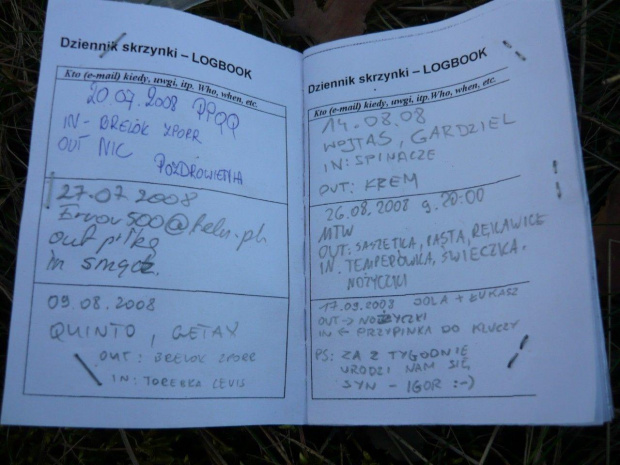 Dziennik skrzynki – LOGBOOK
Kto (e-mail) kiedy, uwgi, itp. Who, when, etc.
20.07.2008 PPQQ
IN - BRELOK ZPORR
OUT NIC
POZDROWIENIA
27.07 2008
out piłkę
in smycz.
09.08.2008
QUINTO, GETAX
OUT: BRELOK ZPORR
IN: TOREBKA LEVIS
Dziennik skrzynki – LOGBOOK
Kto (e-mail) kiedy, uwgi, itp. Who, when, etc.
14.08.08
WOJTAS, GARDZIEL
IN: SPINACZE
OUT: KREM
26.08.2008 g. 20:00
MTW
OUT: SASZETKA, PASTA, REKAWICE
IN. TEMPERÓWKA, ŚWIECZKA,
NOŻYCZKI
17.09.2008 JOLA + ŁUKASZ
OUT → NOŻYCZKI
IN ← PRZYPINKA DO KLUCZY
PS: ZA 2 TYGODNIE
URODZI NAM SIĘ
SYN - IGOR :-)